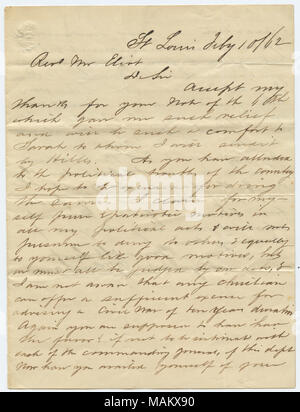 St Louis Feby 10/62
Revd Mr Eliot
Dr Sir
Accept my
thanks for your Note of the 6th
which gave me such relief
and will be such a comfort to
Sarah to whom I will send it
by Hills. As you have alluded
to the political trouble of the country
I hope to for doing
the same. I claim for my-
self pure & patriotic motives in
all my political acts & will not
presume to deny to others, & equally
to yourself like good motives, but
we must all be judged by our acts, &
I am not aware that any christian
can offer a sufficient excuse for
advising a Civil War of ten years duration
Again you are supposed to have had
the favor if not to be intimate with
each of the commanding Generals, of this dept
Now have you availed yourself of your
alamy
MAKX90
www.alamy.com